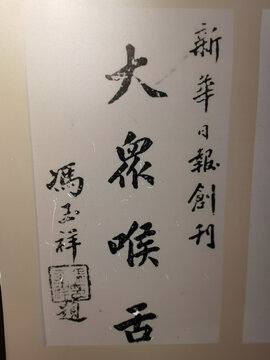 新華日報創刊
大眾喉舌
馮玉祥題